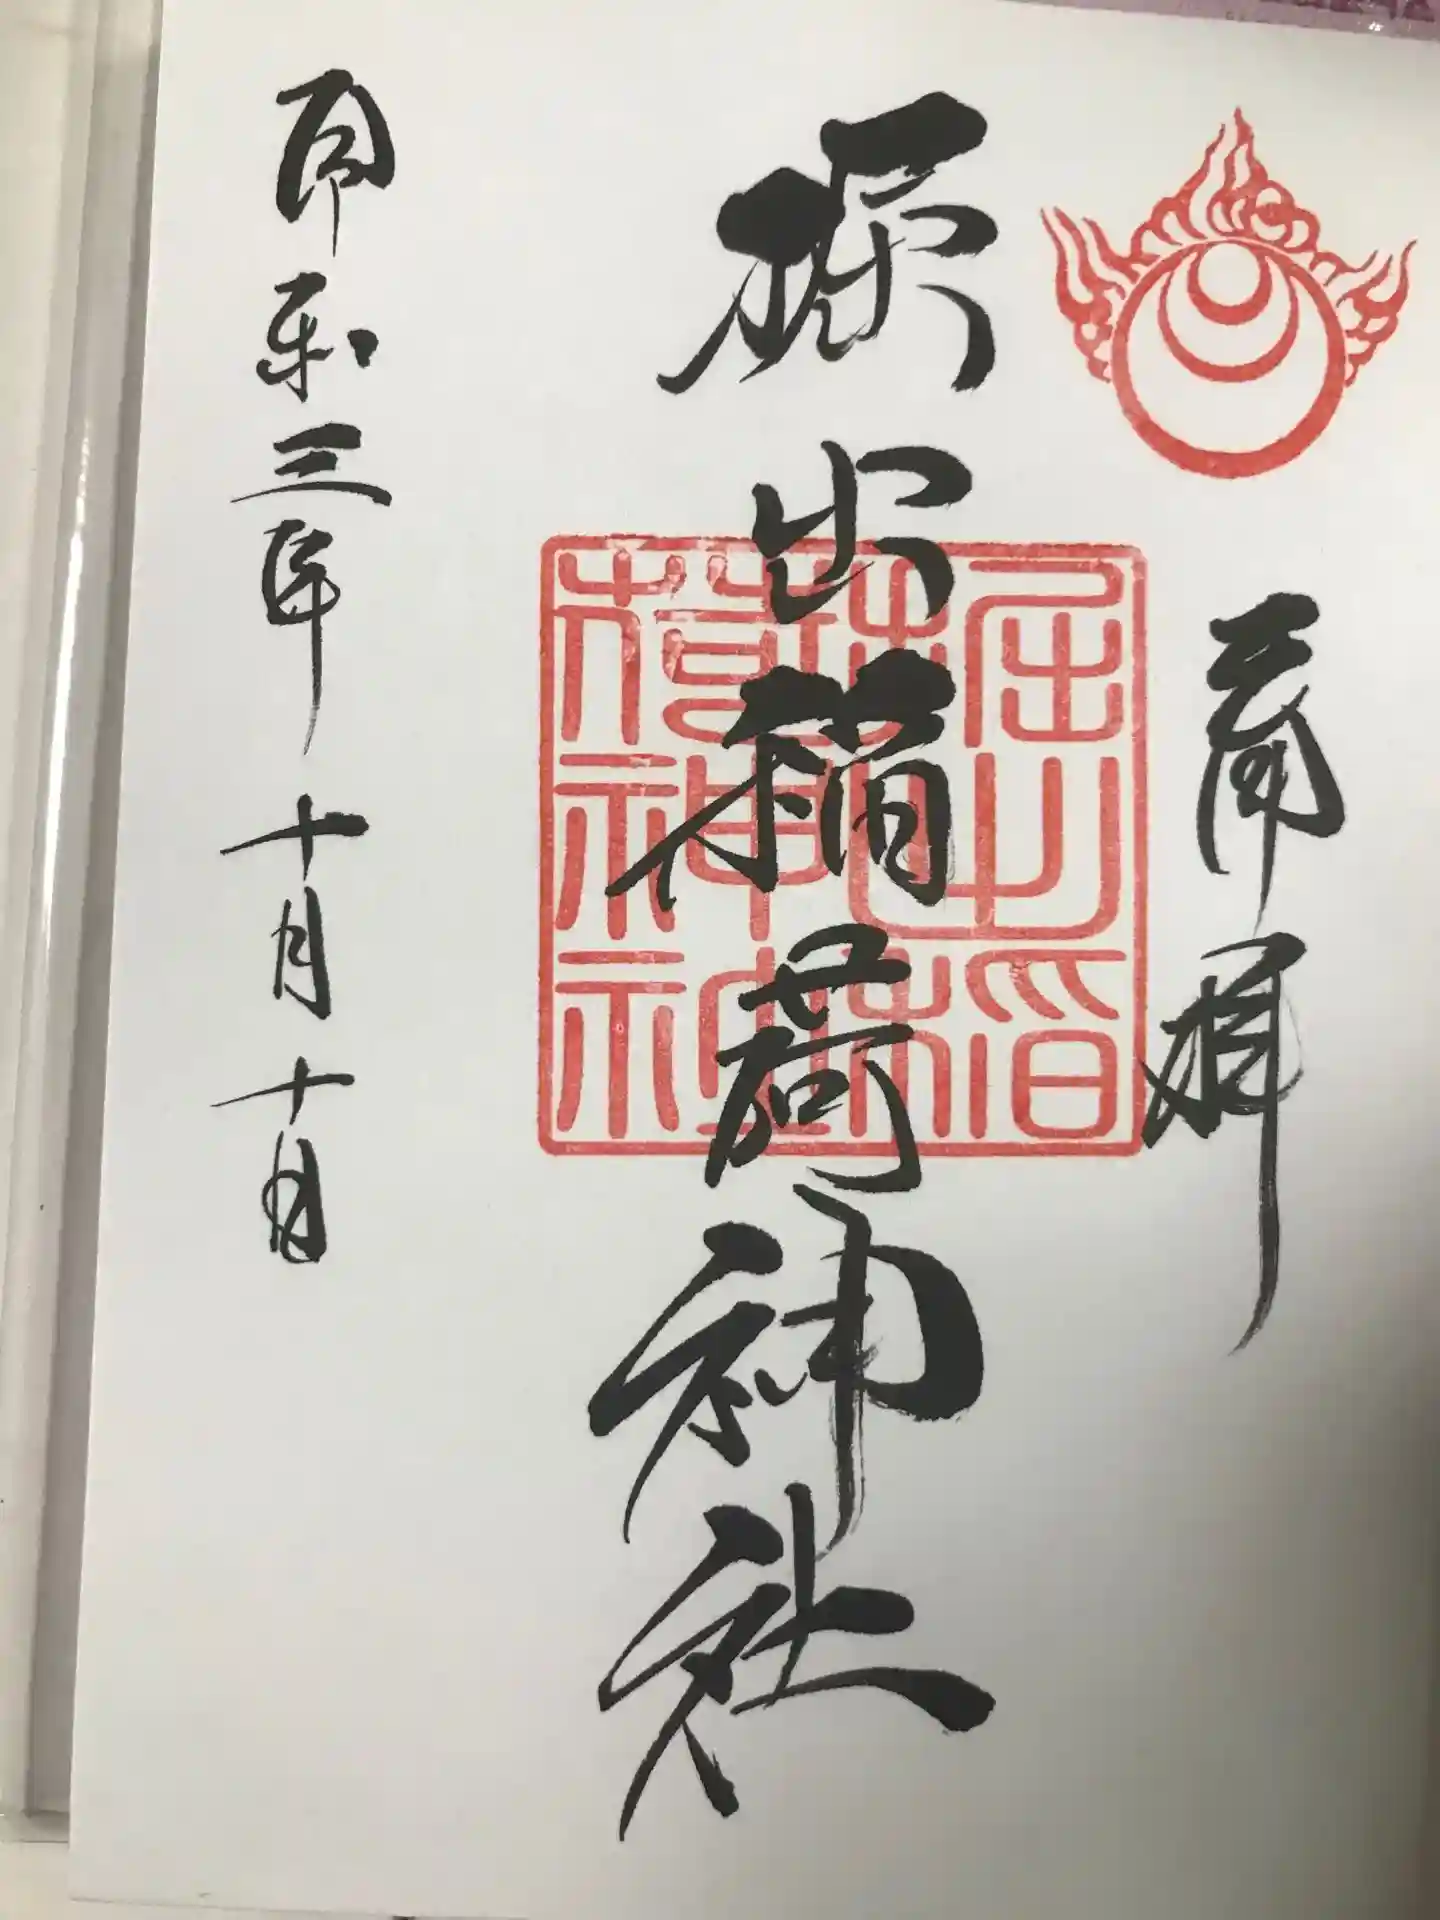 奉拝
堀出稲荷神社
堀出稲
荷神社
令和三年十月十日